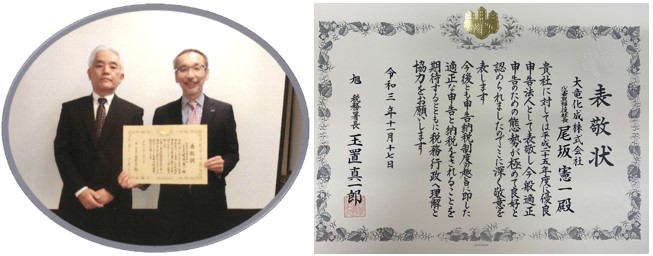 表敬状
大竜化成株式会社
代表取締役社長 尾坂憲一殿
貴社に対しては平成二十五年度に優良
申告法人として表敬し今般適正
申告のための態勢が極めて良好と
認められましたのでここに深く敬意を
表します
今後とも申告納税制度の趣旨に即した
適正な申告と納税をされることを
期待するとともに税務行政へ理解と
協力をお願いします
令和三年十一月十七日
旭税務署長 玉置真一郎
表敬状